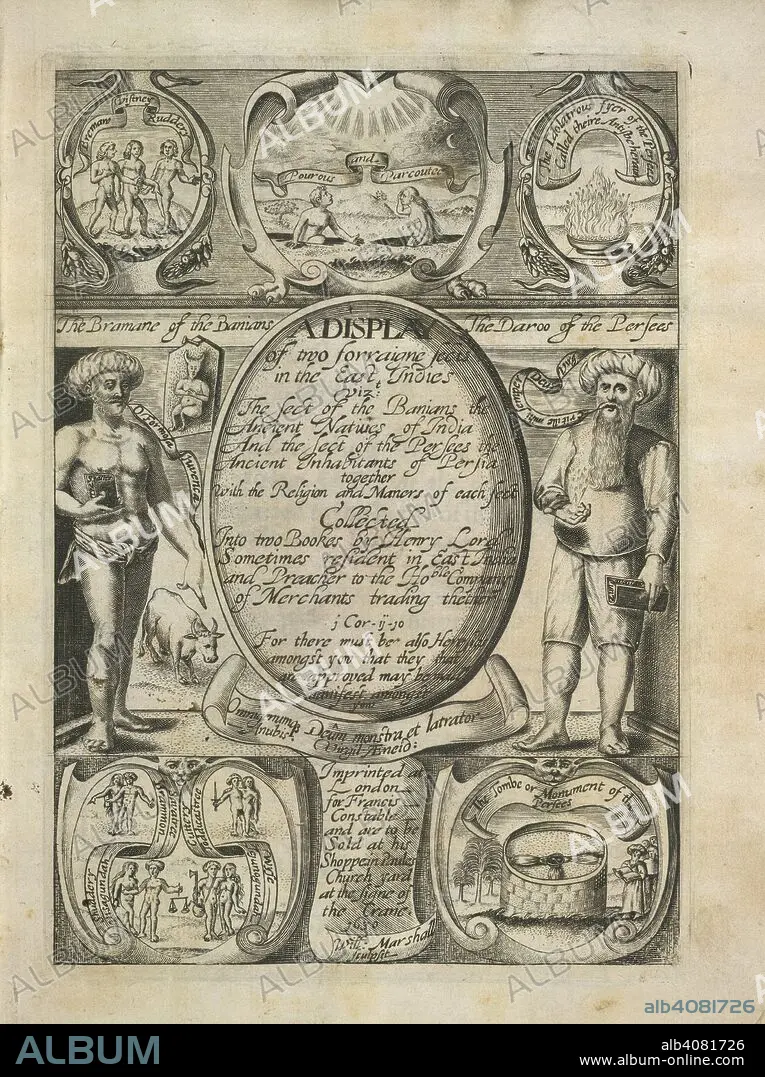 Bremaw Vistney Ruddery
Pourous and Parcoutee
The Idolatrous fyer of the Persees
called theire Antisbeheraun
The Bramane of the Banians
The Daroo of the Persees
A DISPLAY
of two forraigne sects
in the East Indies
viz:
The sect of the Banians the
Ancient Natives of India
And the sect of the Persees the
Ancient Inhabitants of Persia
together
with the Religion and Maners of each sect
Collected
Into two Bookes by Henry Lord
Sometimes resident in East India
and Preacher to the Hoble Company
of Merchants trading thether
j Cor-ij-10
For there must be also Heresies
amongst you that they that
are approved may be made
manifest amongst
you
Omnigenumq Deûm monstra et latrator
Anubis Virgil Æneid:
Imprinted at
London
for Francis
Constable
and are to be
Sold at his
Shoppe in Paules
Church yard
at the signe of
the Crane
1630
Will: Marshall
sculpsit
The Tombe or Monument of the
Persees
ALBUM
alb4081726
ALBUM
alb4081726
www.album-online.com